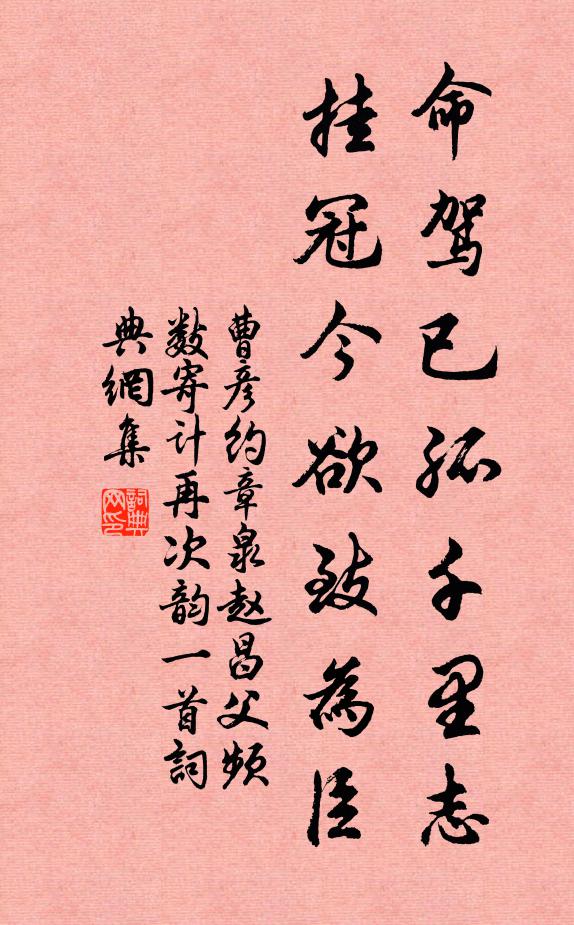 命驾已孤千里志
挂冠今欲致為臣
曹彦约章泉赵昌父频
数寄计再次韵一首詞
典網集
詞典网印